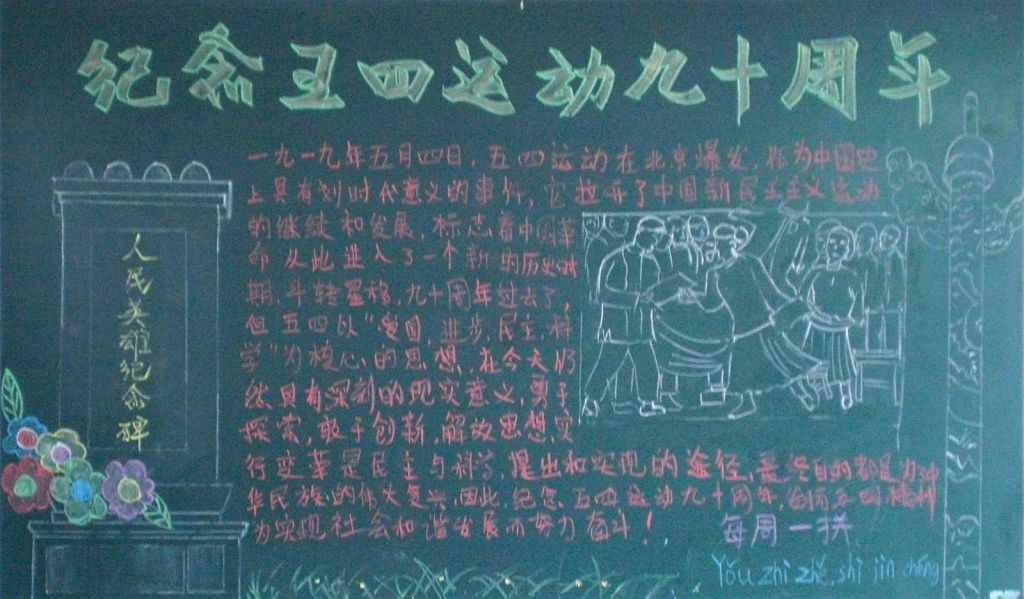 纪念五四运动九十周年
一九一九年五月四日，五四运动在北京爆发，作为中国史
上具有划时代意义的事件，它拉开了中国新民主主义运动
的继续和发展，标志着中国革
命从此进入了一个新的历史时
期，斗转星移，九十周年过去了，
但五四以“爱国，进步，民主，科
学”为核心的思想，在今天仍
然具有深刻的现实意义，勇于
探索，敢于创新，解放思想，实
行变革是民主与科学，提出和实现的途径，最终目的都是为中
华民族的伟大复兴，因此，纪念五四运动九十周年，五四精神
为实现社会和谐发展而努力奋斗！
人民英雄纪念碑
每周一拼
Yǒu zhì zhě, shì jìn chéng